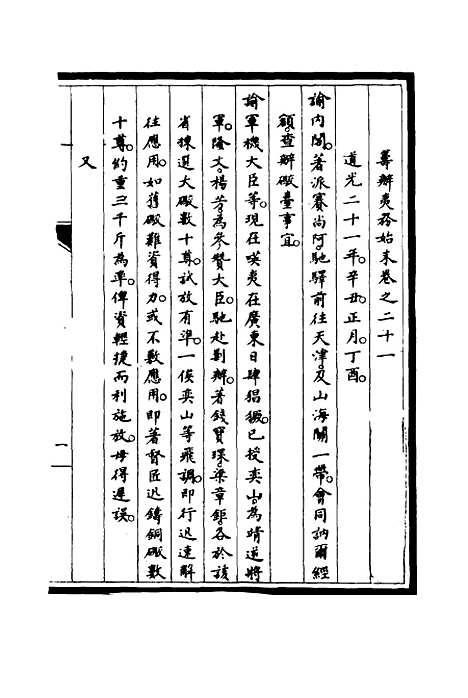 籌辦夷務始末卷之二十一
道光二十一年。辛丑。正月。丁酉。
諭內閣。著派賽尚阿。馳驛前往天津。及山海關一帶。會同訥爾經
額。查辦礮臺事宜。
諭軍機大臣等。現在𠸄夷在廣東日肆猖獗。已授奕山。為靖逆將
軍。隆文。楊芳。為參贊大臣。馳赴剿辦。著錢寶琛。梁章鉅。各於該
省揀選大礮數十尊。試放有準。一俟奕山等飛調。即行迅速解
往應用。如舊礮難資得力。或不敷應用。即著督匠迅鑄銅礮數
十尊。約重三千斤為準。俾資輕捷而利施放。毋得遲誤。
又
一